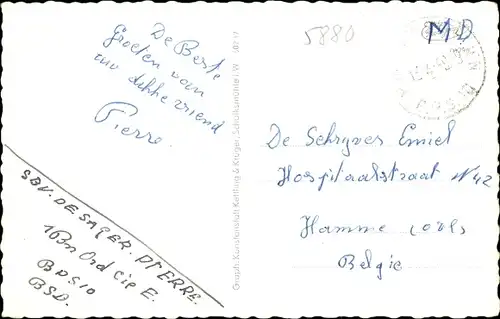 De Beste
Groeten van
uw dikke vriend
Pierre.
SBV. DE SAGER. PIERRE.
16Bn Ord Cie E.
BPS10
BSD.
Graph. Kunstanstalt Kettling & Krüger, Schalksmühle i. W.
5880
MD
De Schryver Emiel
Hospitaalstraat N 42
Hamme
Belgie